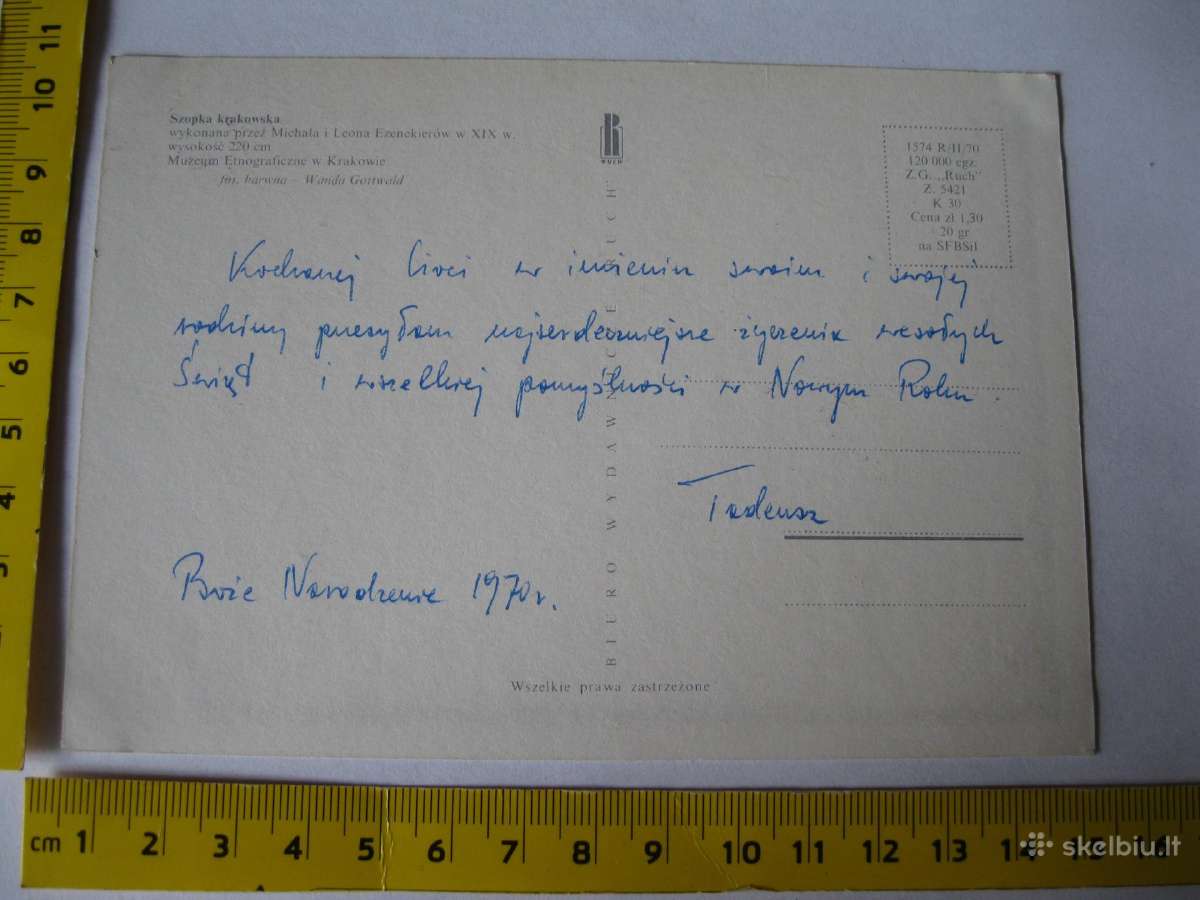 Szopka krakowska
wykonana przez Michała i Leona Ezenekierów w XIX w.
wysokość 220 cm
Muzeum Etnograficzne w Krakowie
fot. barwna – Wanda Gottwald
R
RUCH
1574 R/II/70
120 000 egz.
Z.G. „Ruch"
Z. 5421
K 30
Cena zł 1,30
20 gr
na SFBSiI
Kochanej Cioci w imieniu swoim i swojej
rodziny przesyłam najserdeczniejsze życzenia wesołych
Świąt i wszelkiej pomyślności w Nowym Roku
Tadeusz
Boże Narodzenie 1970r.
BIURO WYDAWNICZE RUCH
Wszelkie prawa zastrzeżone
11
10
9
8
7
6
5
4
3
cm 1 2 3 4 5 6 7 8 9 10 11 12 13 14 15 16
skelbiu.lt